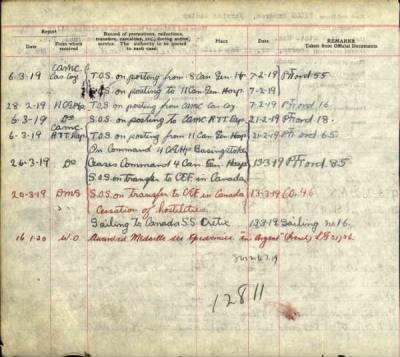 Report
Record of promotions, reductions, transfers, casualties, etc., during active service. The authority to be quoted in each case.
Place
Date
REMARKS
Taken from Official Documents
Date
From which received
CAMC
6-3-19 Cas Coy T.O.S. on posting from 8 Can Gen 7-2-19 Pt II ord 55
S.O.S on posting to 11 Can Gen Hosp.
28 2-19 T.O.S. on posting from CAMC Cas Coy 7-2-19 Pt II ord 16
6-3-19 Do S.O.S. on posting to CAMC 21-2-19 Pt II ord 18.
CAMC
6-3-19 T.O.S. on posting from 11 Can Gen Hosp. 21-2-19 Pt II ord 65.
On Command 4 CGH Basingstoke
26-3-19 Do Ceases Command 4 Can Gen Hosp 13-3-19 Pt II ord 85
S.O.S. on transfer to CEF in Canada
20-3-19 DMS S.O.S. on transfer to CEF in Canada 13-3-19
Cessation of hostilities
Sailing to Canada S.S. Celtic 13-3-19 Sailing no 16.
16 1-20 W.O. Awarded Medaille des Epidemies "en Argent" (French)
12811